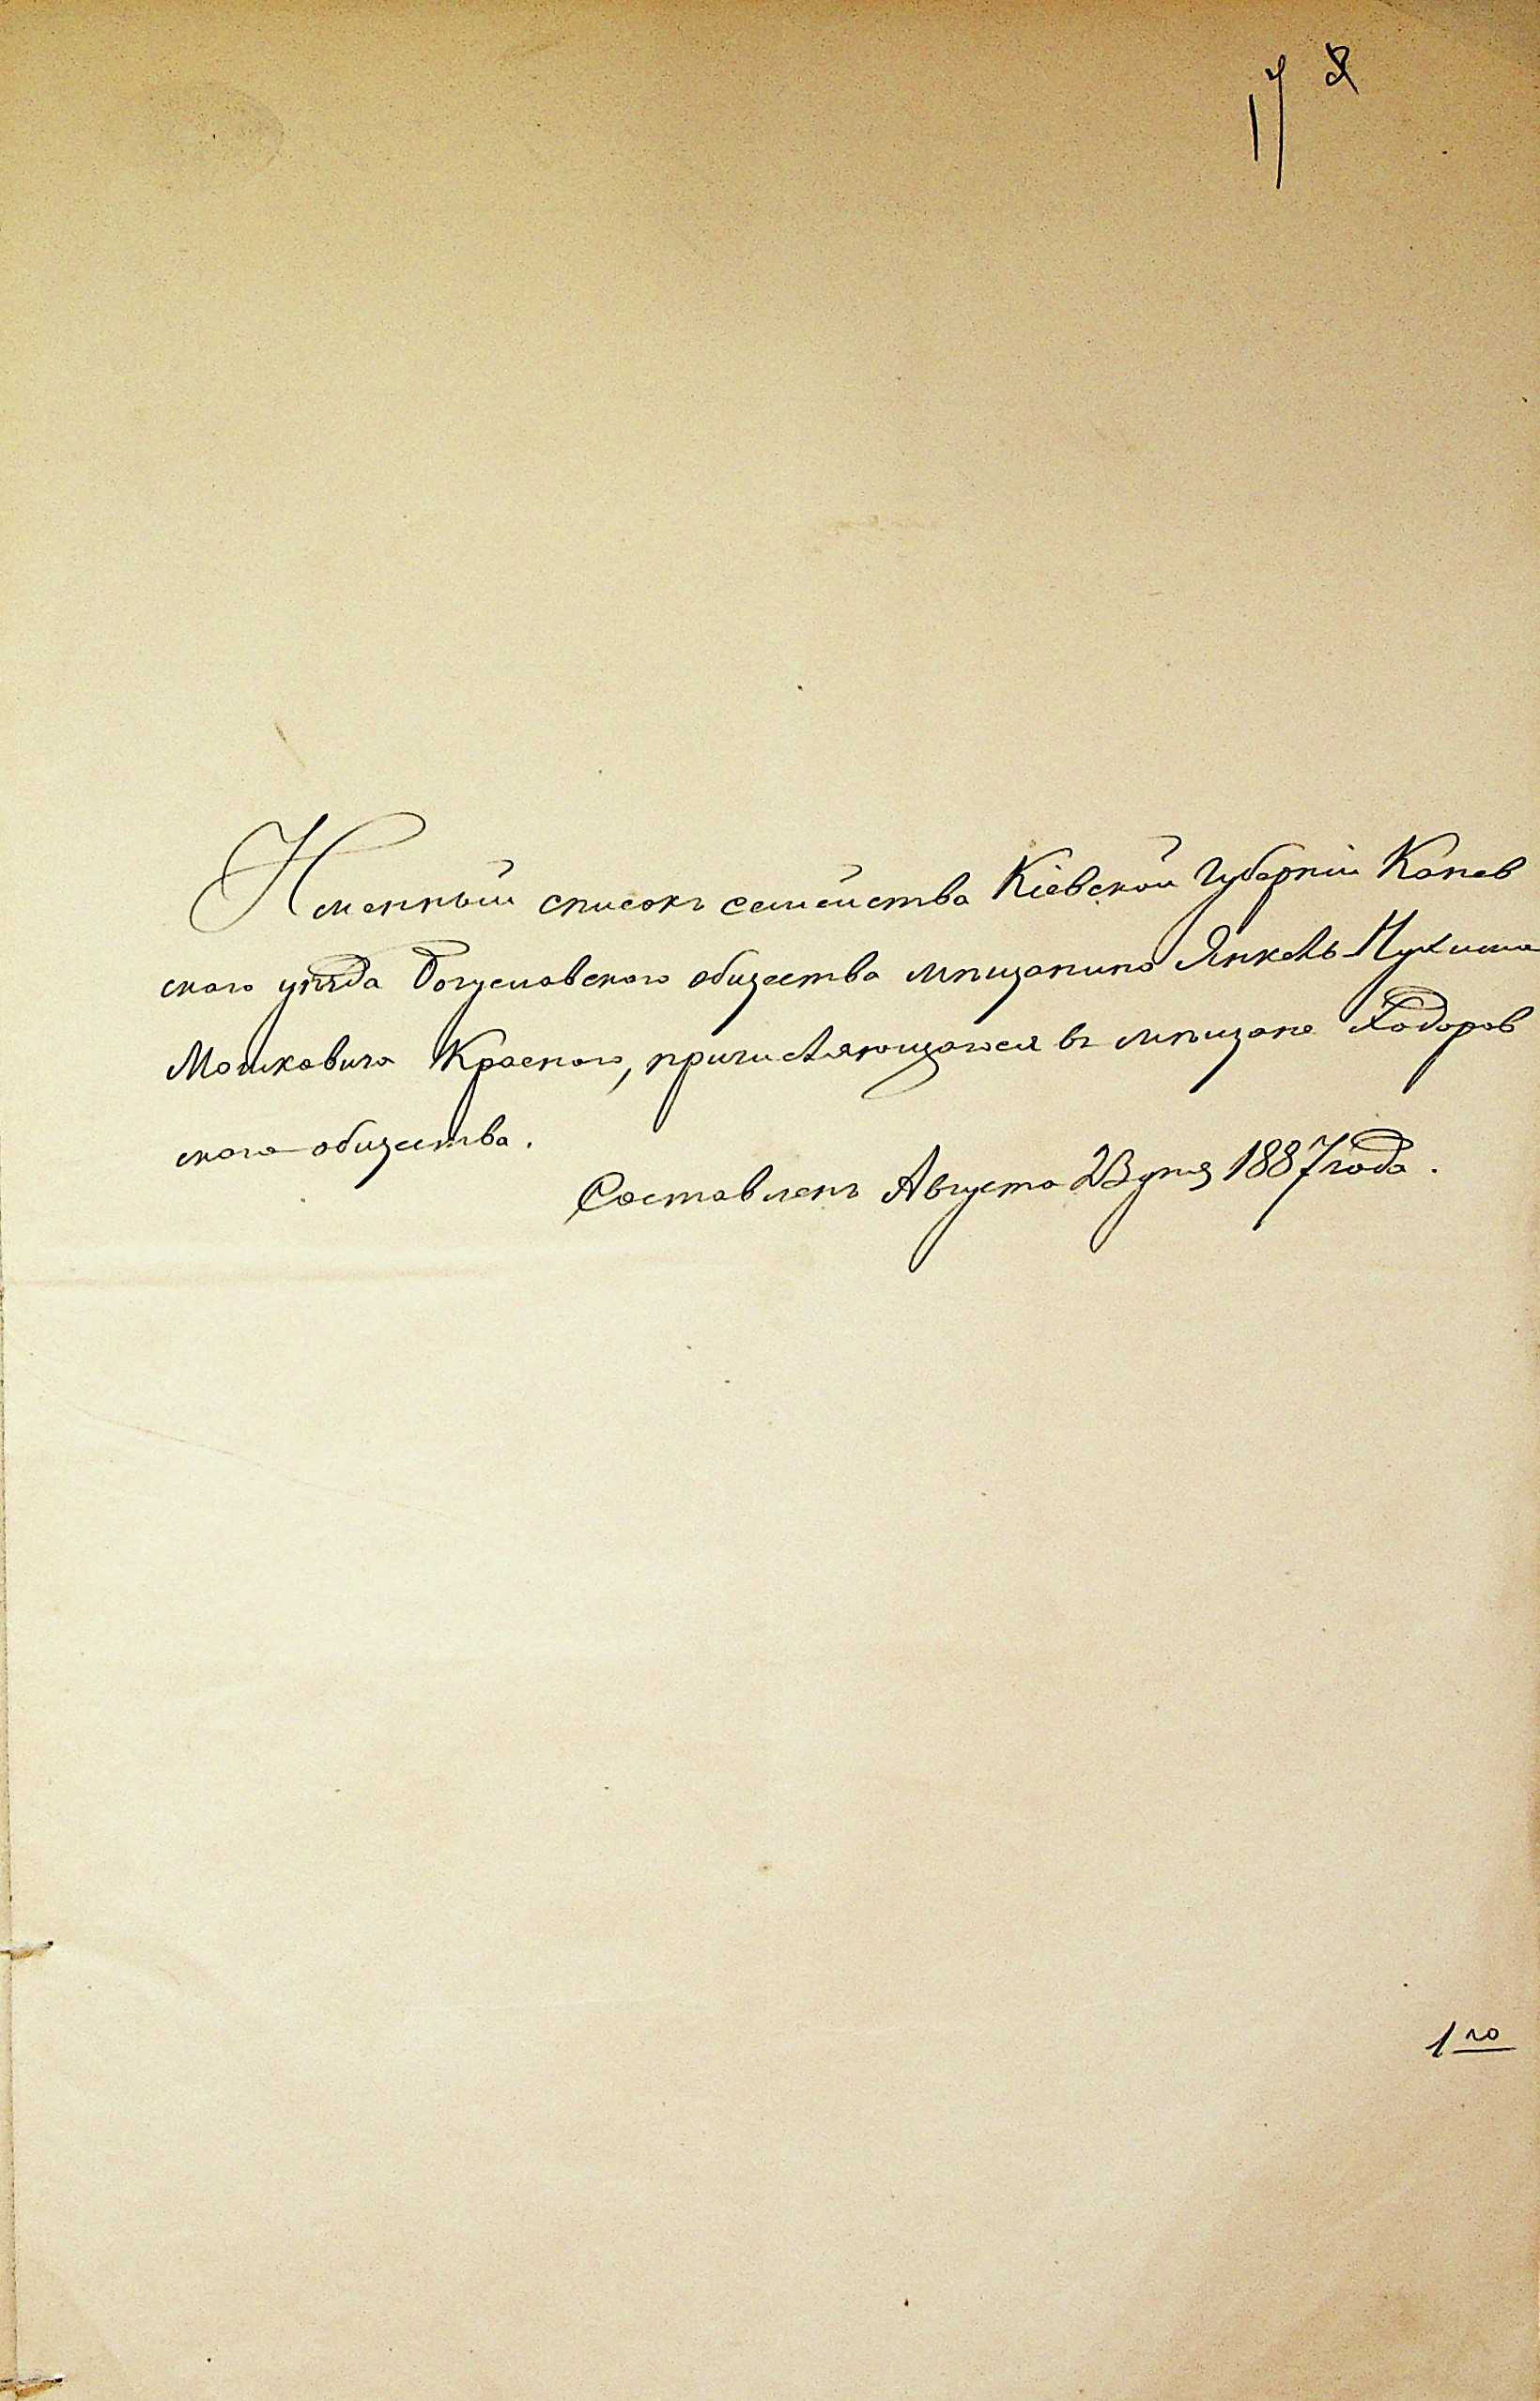 17 8
Именный списокъ семейства Кіевской Губерніи Канев
ского уѣзда Богуславского общества мѣщанина Янкель-Нухима
Мошковича Красного, причисляющагося въ мѣщане Ходоров
ского общества.
Составленъ Августа 23 дня 1887 года.
1го